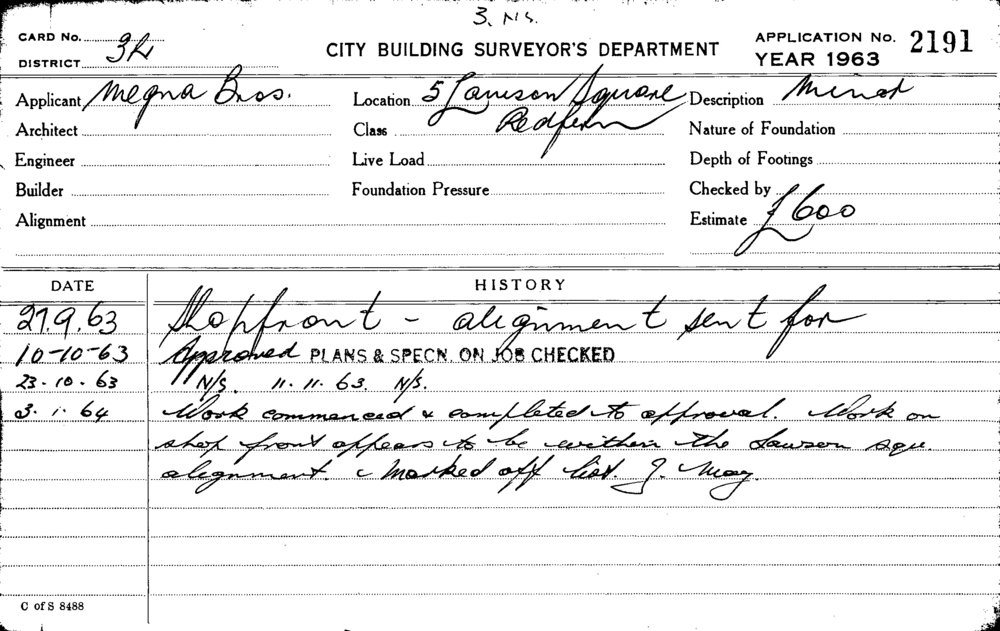 3. N/S.
CARD No. 3L
DISTRICT
CITY BUILDING SURVEYOR'S DEPARTMENT
APPLICATION No. 2191
YEAR 1963
Applicant Megna Bros. Location 5 Lawson Square Description Minor
Architect Class Redfern Nature of Foundation
Engineer Live Load Depth of Footings
Builder Foundation Pressure Checked by
Alignment Estimate £600
DATE HISTORY
27.9.63 Shopfront - alignment sent for
10-10-63 Approved PLANS & SPECN. ON JOB CHECKED
23.10.63 N/S. 11.11.63. N/S.
3.1.64 Work commenced & completed to approval. Work on
shop front appears to be within the Lawson squ.
alignment. Marked off list. J. May.
C of S 8488